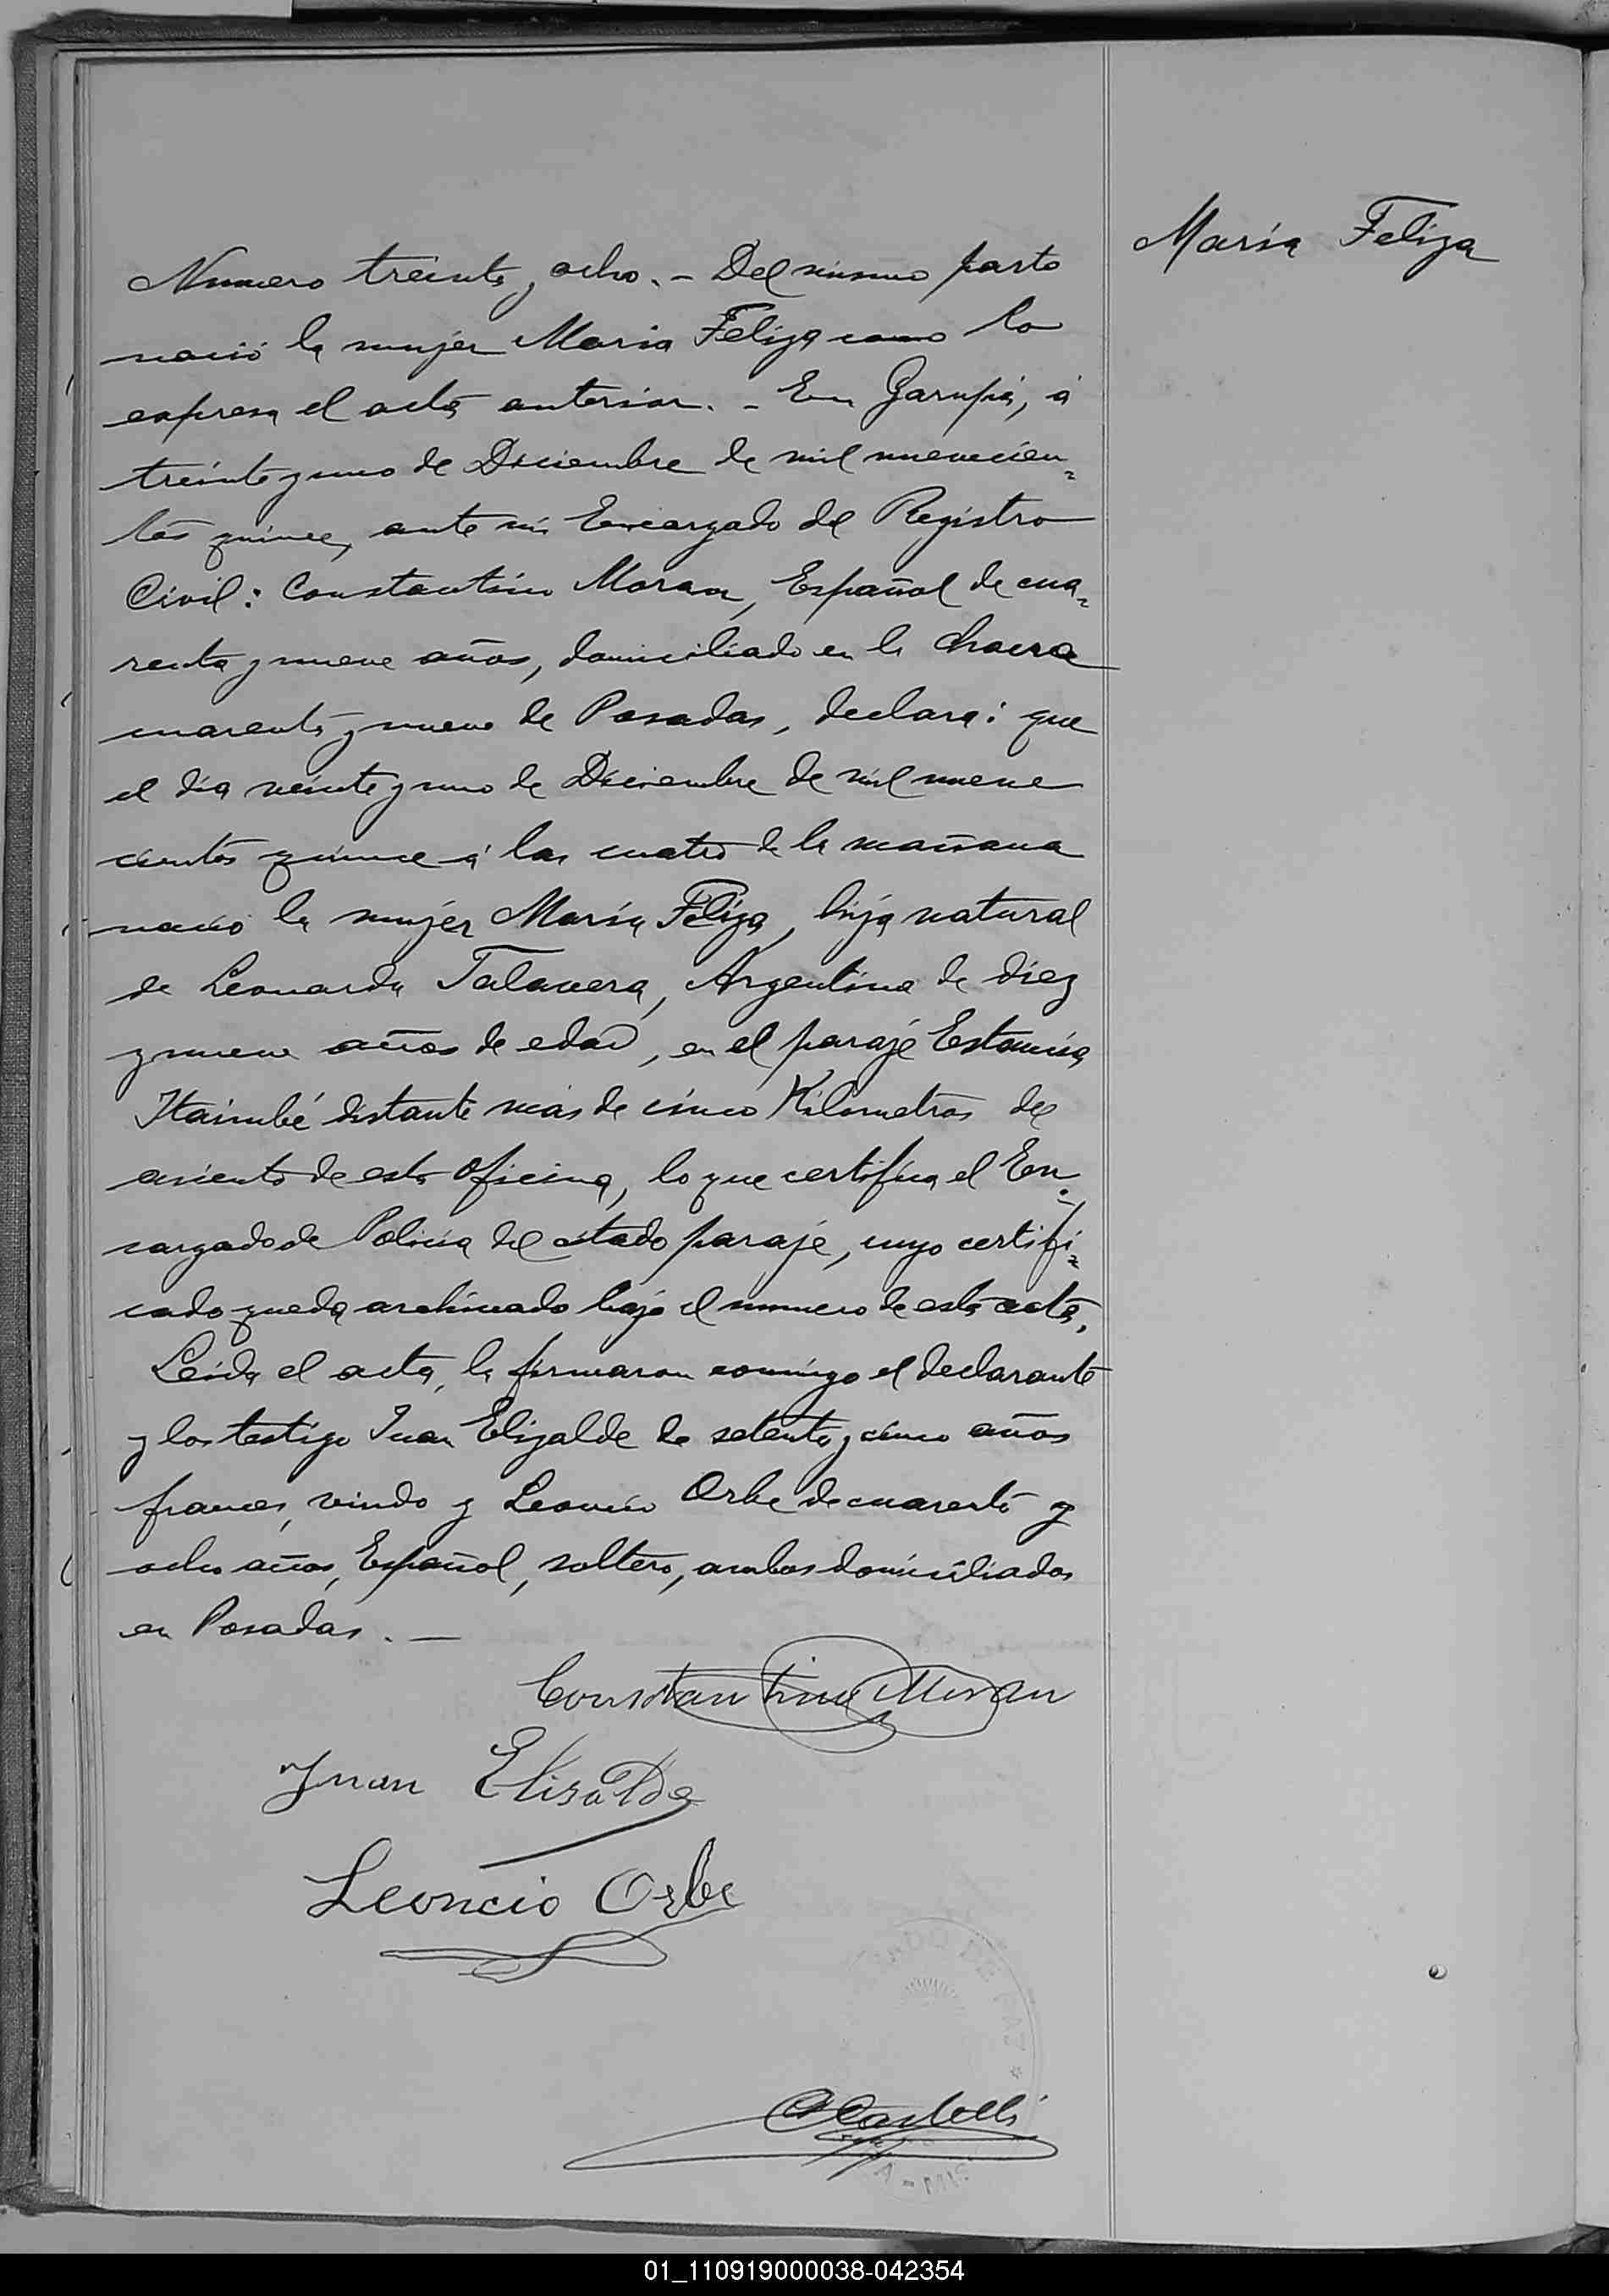 María Feliza
Numero treinta y ocho. - Del mismo parto
nació la mujer Maria Feliza como lo
expresa el acta anterior. - En Garupá, á
treinta y uno de Diciembre de mil novecien=
tos quince, ante mi Encargado del Registro
Civil: Constantino Moran, Español de cua=
renta y nueve años, domiciliado en la chacra
cuarenta y nueve de Posadas, declara: que
el dia veinte y uno de Diciembre de mil nueve
cientos quince á las cuatro de la mañana
nació la mujer María Feliza, hija natural
de Leonarda Talavera, Argentina de diez
y nueve años de edad, en el paraje Estancia
Itaimbé distante más de cinco Kilometros del
asiento de esta oficina, lo que certifica el En=
cargado de Policía del citado paraje, cuyo certifi=
cado queda archivado bajo el numero de esta acta.
Leida el acta, la firmaron conmigo el declarante
y los testigo Juan Elizalde de setenta y cinco años
frances, viudo y Leoncio Orbe de cuarenta y
ocho años, Español, soltero, ambos domiciliados
en Posadas. —
Constantino Moran
Juan Elisalde
Leoncio Orbe
Castelli
01_110919000038-042354